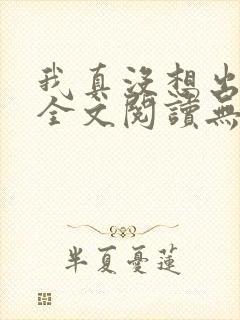 我真沒想出
全文閱讀無
半夏憂蓮